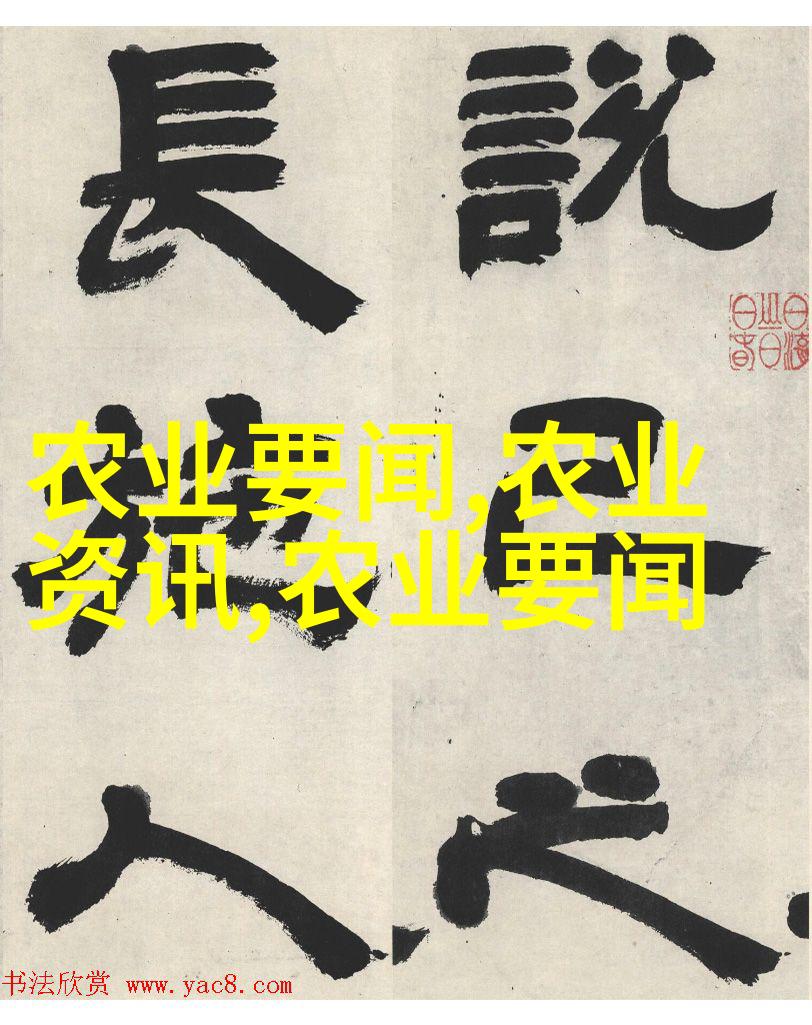 說己之
長施人
农业要闻,农业
资讯,农业要闻
书法欣赏 www.yac8.com